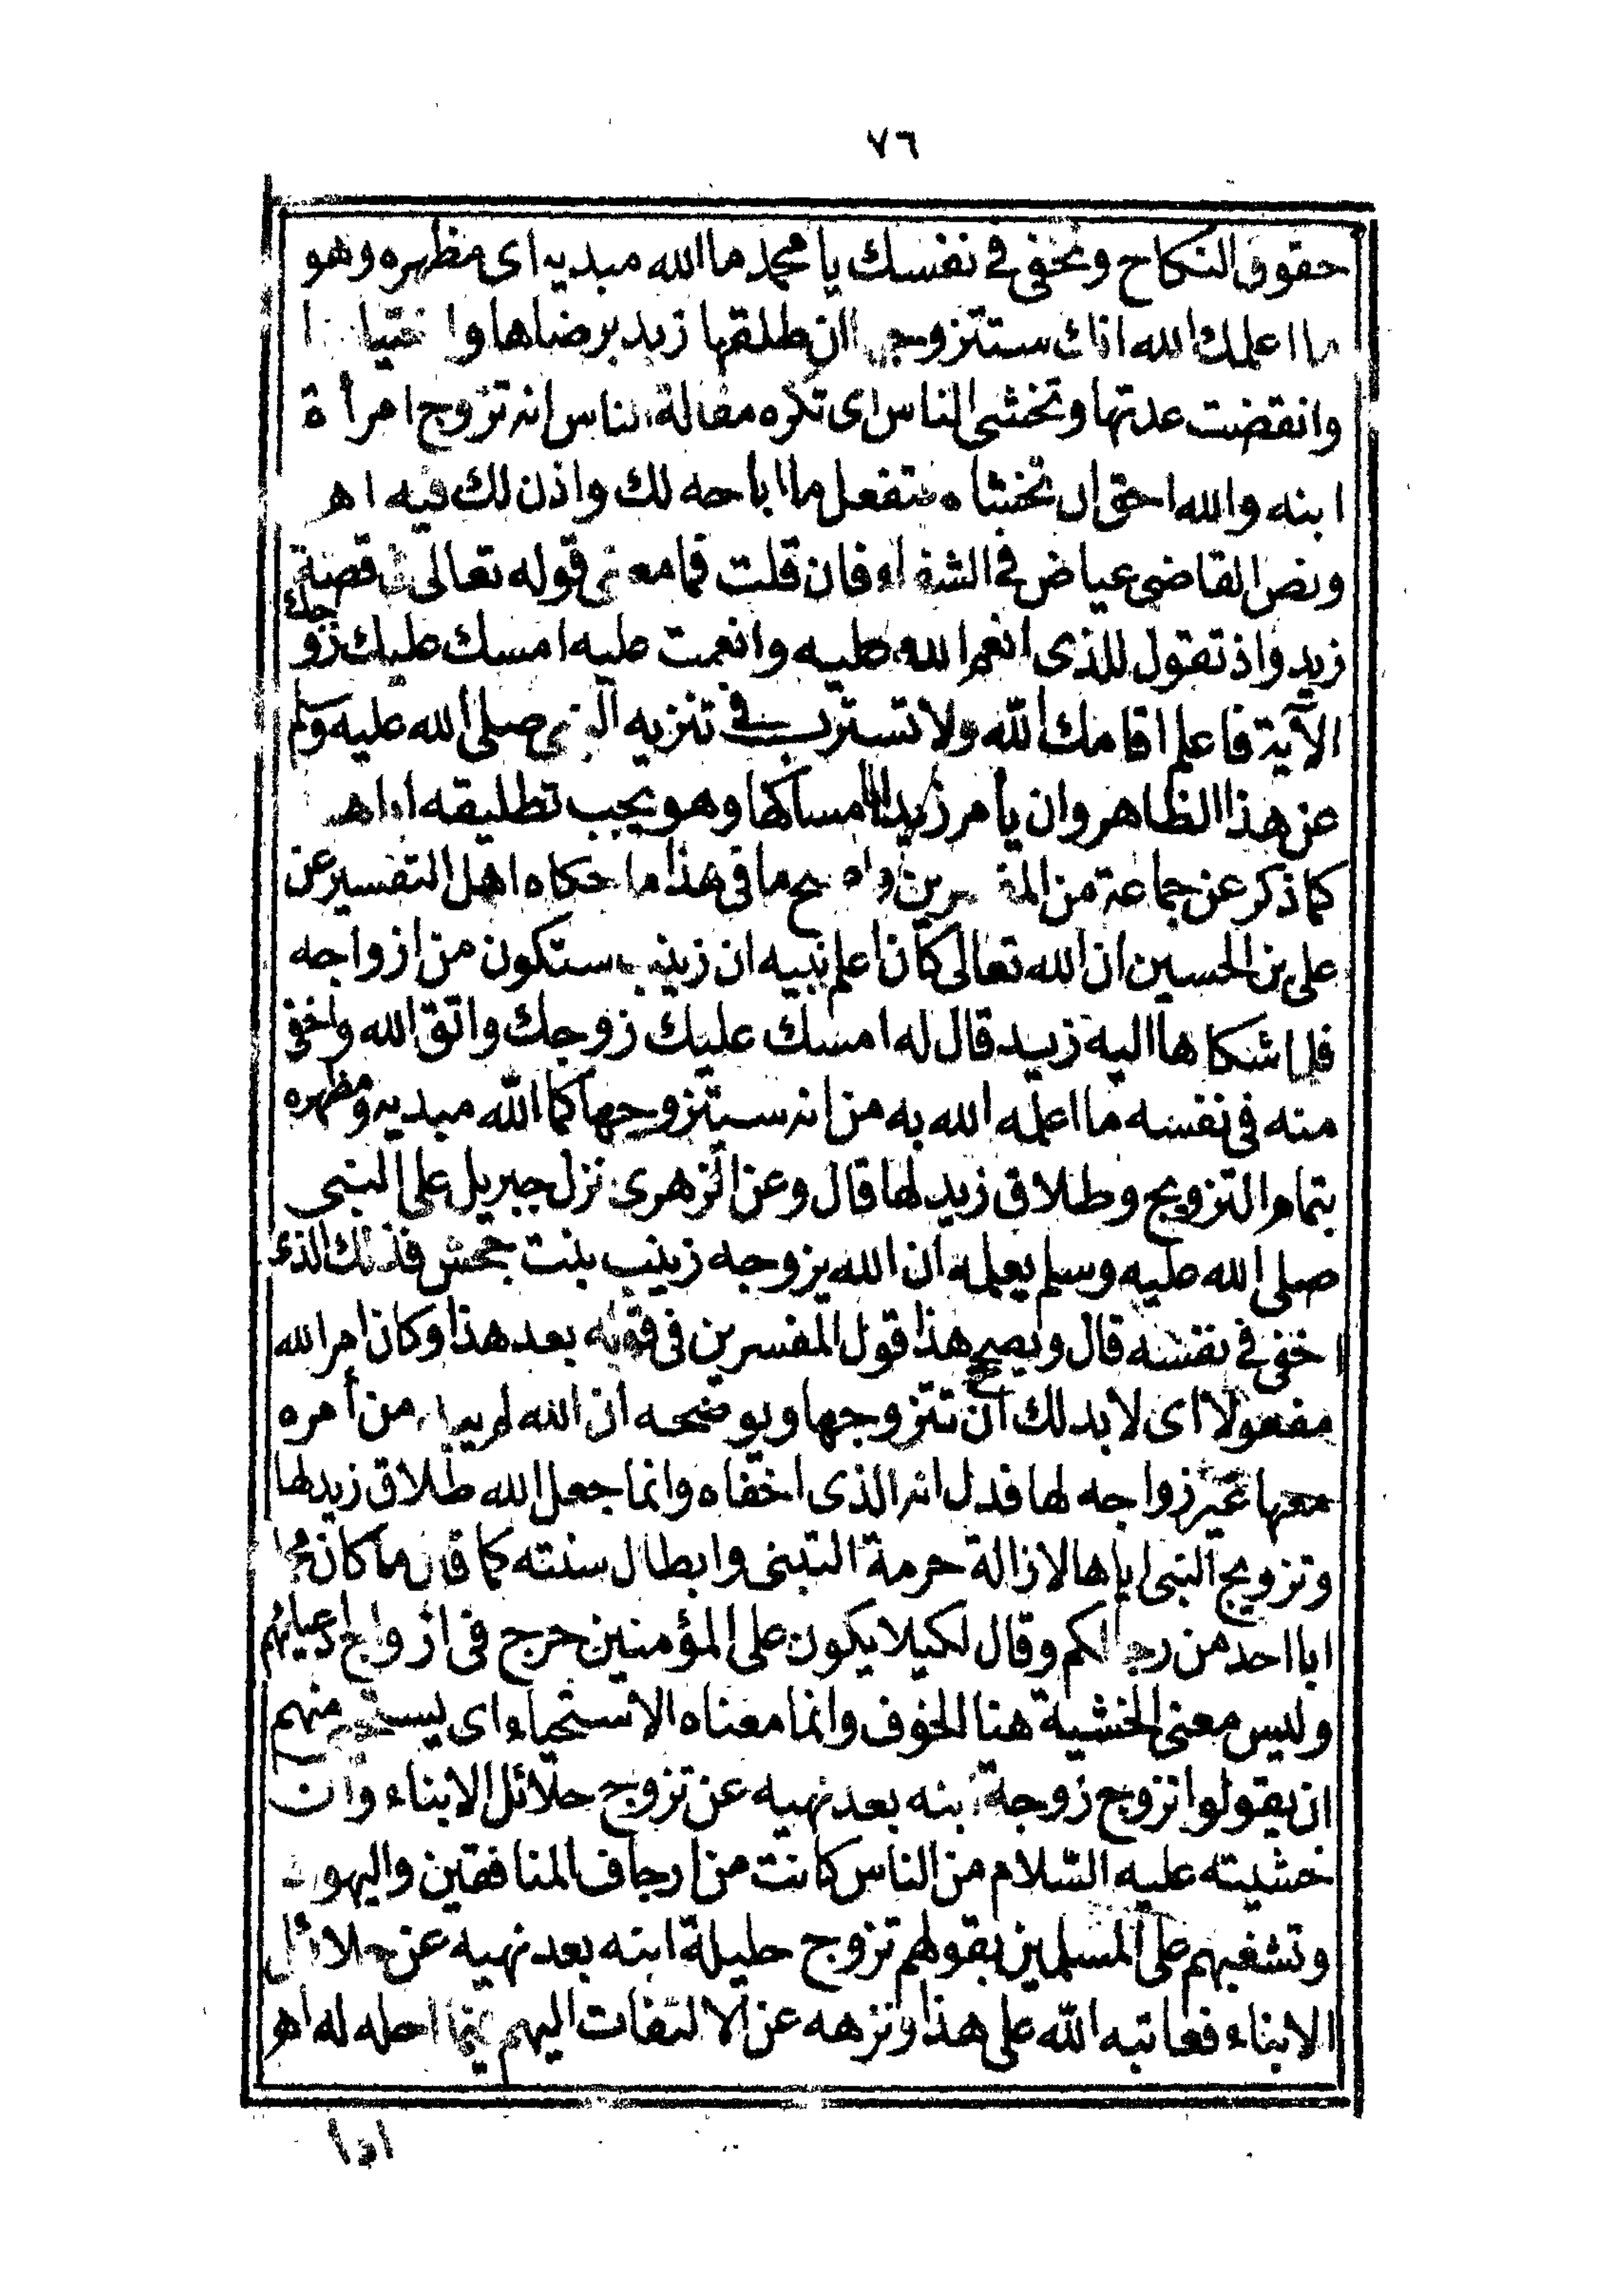 ٧٦
حقوق النكاح وتخفى فى نفسك يا محمد ما الله مبديه اى مظهره وهو
ما اعلمك الله انك ستتزوجها ان طلقها زيد برضاها وا
وانقضت عدتها وتخشى الناس اى تكره مقالة الناس انه تزوج امرأة
ابنه والله احق ان تخشاه فتفعل ما اباحه لك واذن لك فيه اهـ
ونص القاضى عياض فى الشفاء فان قلت فما معنى قوله تعالى فى قصة
زيد واذ تقول للذى انعم الله عليه وانعمت عليه امسك عليك زوجك
الآية فاعلم اقامك الله ولا تسترب فى تنزيه النبى صلى الله عليه وسلم
عن هذا الظاهر وان يأمر زيدا بامساكها وهو يحب تطليقه اياها
كما ذكر عن جماعة من المفسرين واصح ما فى هذا ما حكاه اهل التفسير عن
على بن الحسين ان الله تعالى كان اعلم نبيه ان زينب ستكون من ازواجه
فلما شكاها اليه زيد قال له امسك عليك زوجك واتق الله واخفى
منه فى نفسه ما اعلمه الله به من انه سيتزوجها كما الله مبديه ومظهره
بتمام التزويج وطلاق زيد لها قال وعن الزهرى نزل جبريل على النبى
صلى الله عليه وسلم يعلمه ان الله يزوجه زينب بنت جحش فذلك الذى
اخفى فى نفسه قال ويصحح هذا قول المفسرين فى قوله بعد هذا وكان امر الله
مفعولا اى لا بد لك ان تتزوجها ويوضحه ان الله لم يبد من أمره
معها غير زواجه لها فدل انه الذى اخفاه وانما جعل الله طلاق زيد لها
وتزويج النبى اياها لازالة حرمة التبنى وابطال سنته كما قال ما كان محمد
ابا احد من رجالكم وقال لكيلا يكون على المؤمنين حرج فى ازواج ادعيائهم
وليس معنى الخشية هنا الخوف وانما معناه الاستحياء اى يستحيى منهم
ان يقولوا تزوج زوجة ابنه بعد نهيه عن تزوج حلائل الابناء وان
خشيته عليه السلام من الناس كانت من ارجاف المنافقين واليهود
وتشغبهم على المسلمين بقولهم تزوج حليلة ابنه بعد نهيه عن حلائل
الابناء فعاتبه الله على هذا ونزهه عن الالتفات اليهم فيما احله له اهـ